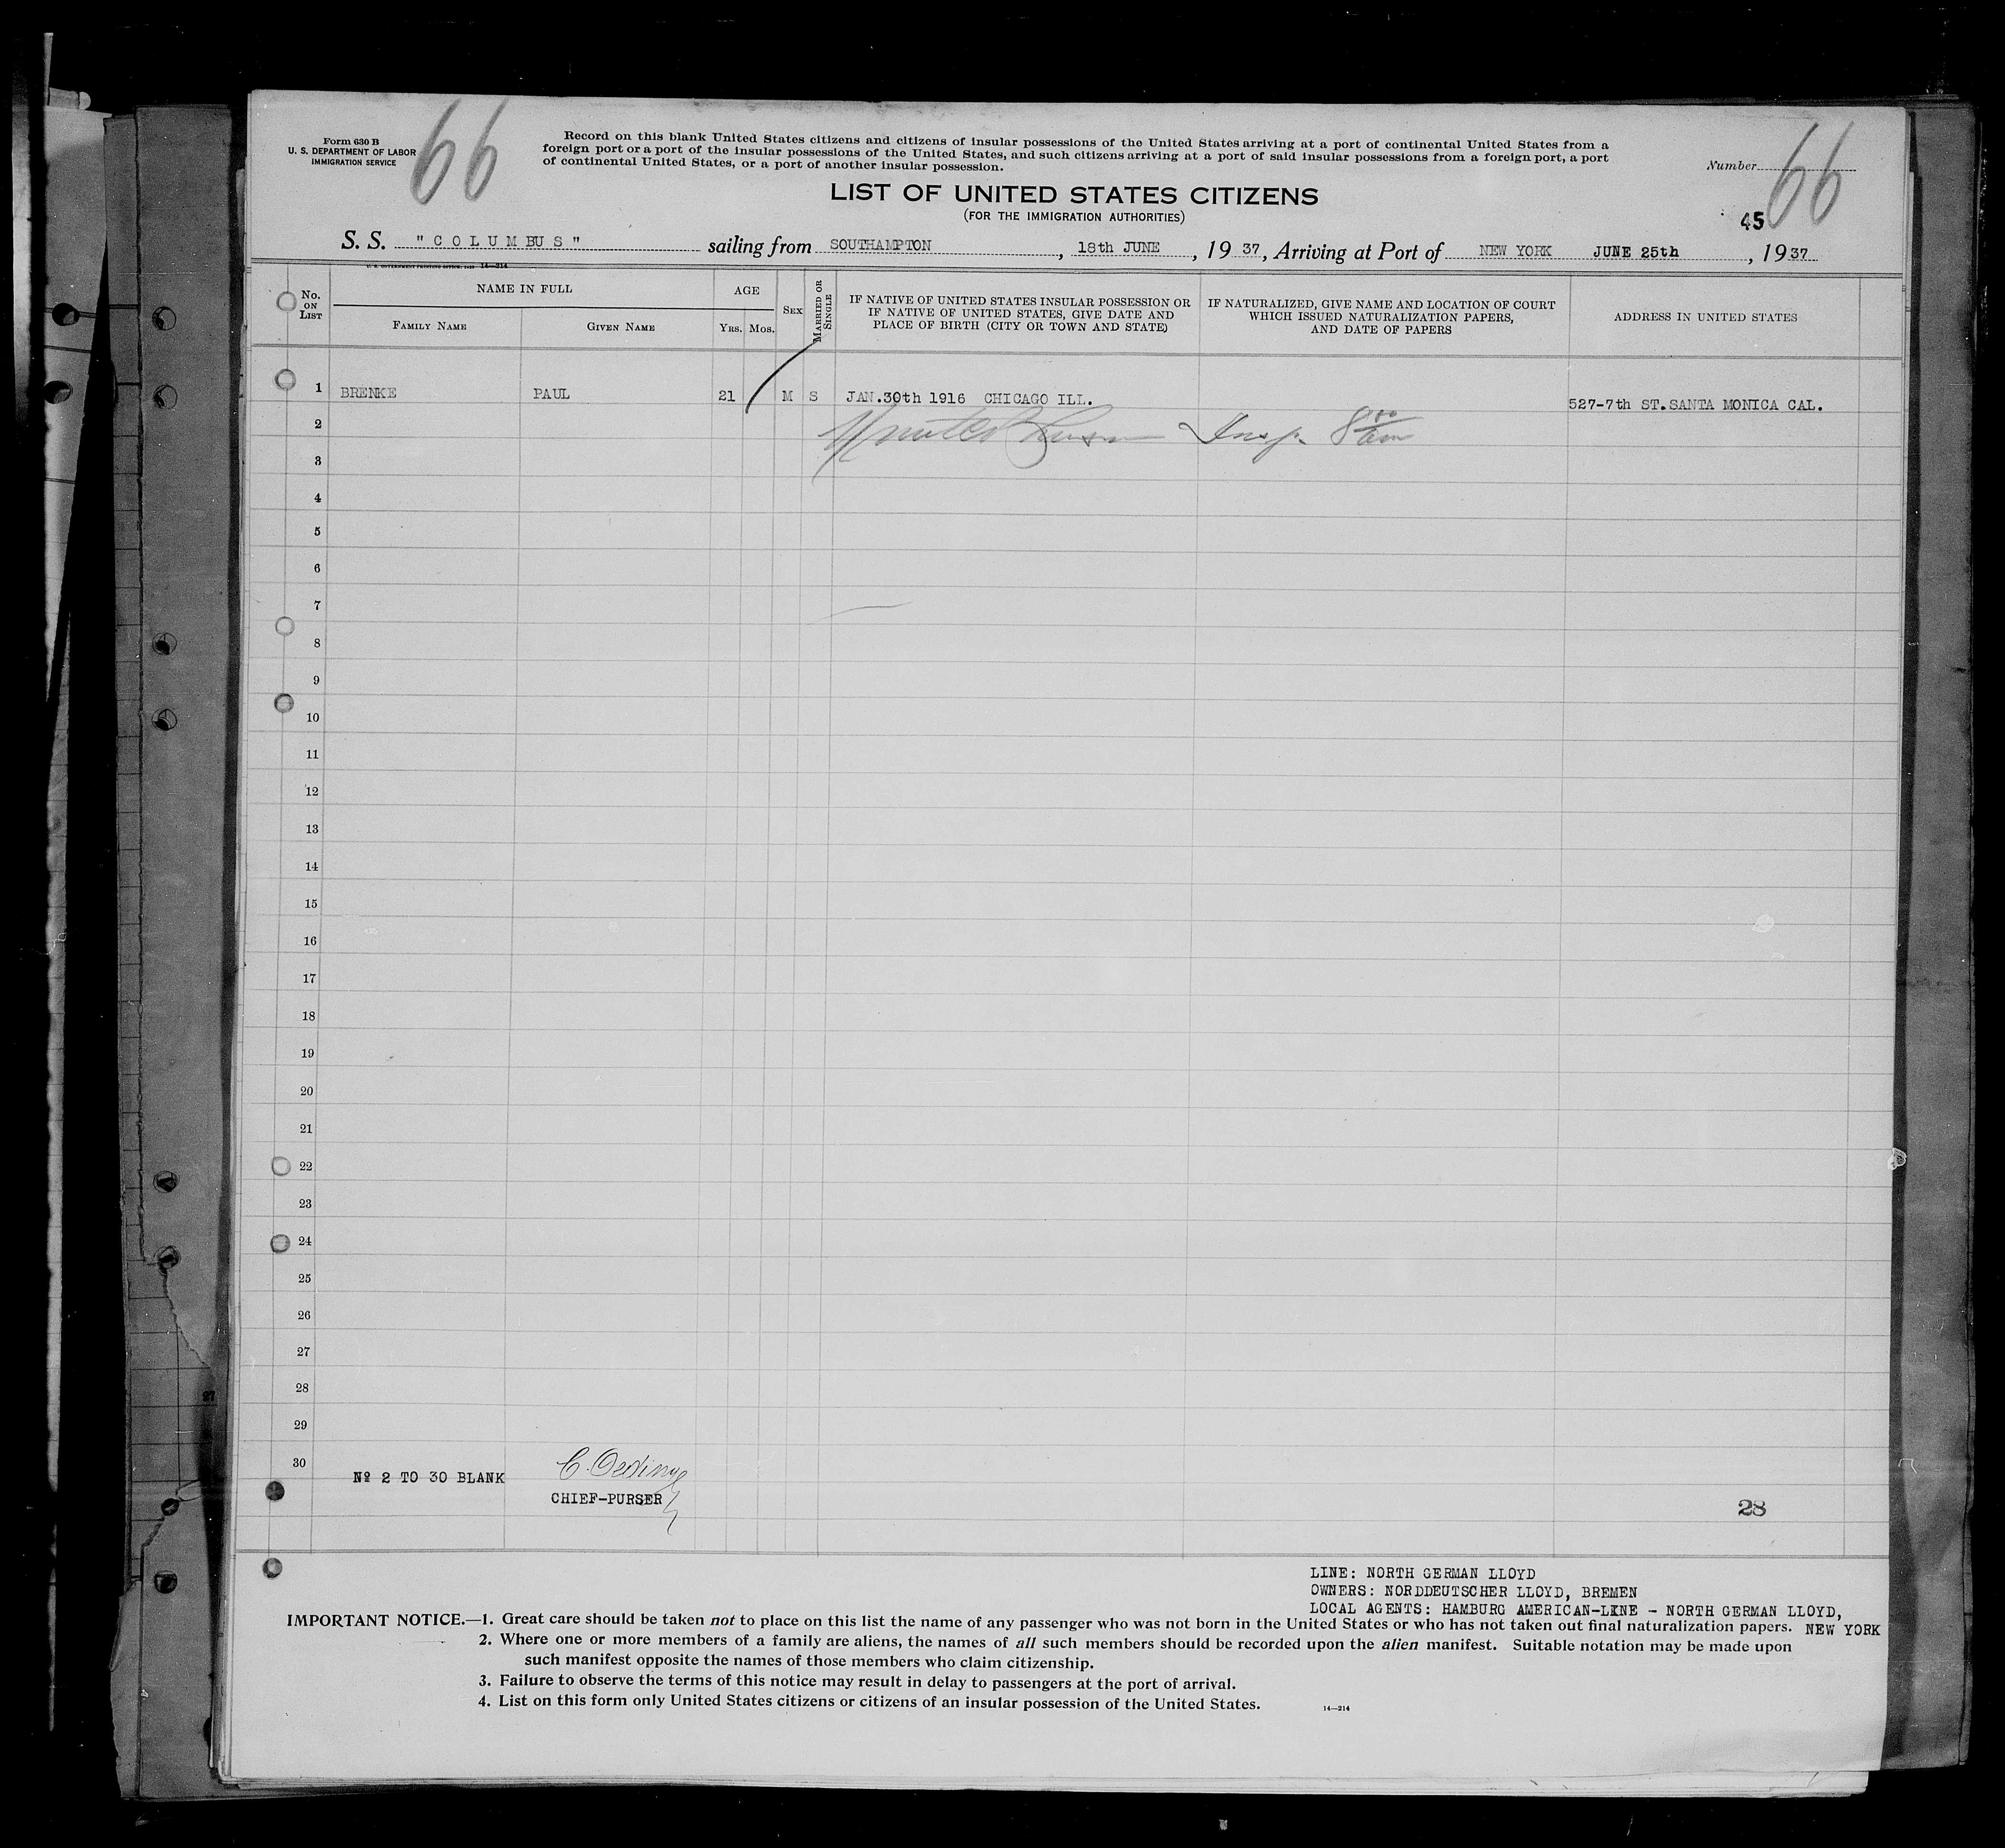 Form 630 B
U. S. DEPARTMENT OF LABOR
IMMIGRATION SERVICE
66
Record on this blank United States citizens and citizens of insular possessions of the United States arriving at a port of continental United States from a
foreign port or a port of the insular possessions of the United States, and such citizens arriving at a port of said insular possessions from a foreign port, a port
of continental United States, or a port of another insular possession.
Number 66
LIST OF UNITED STATES CITIZENS
(FOR THE IMMIGRATION AUTHORITIES)
45
S. S. "COLUMBUS" sailing from SOUTHAMPTON, 18th JUNE, 1937, Arriving at Port of NEW YORK JUNE 25th, 1937
U. S. GOVERNMENT PRINTING OFFICE: 14—214
No. ON LIST
NAME IN FULL
FAMILY NAME
GIVEN NAME
AGE
YRS.
MOS.
SEX
MARRIED OR SINGLE
IF NATIVE OF UNITED STATES INSULAR POSSESSION OR
IF NATIVE OF UNITED STATES, GIVE DATE AND
PLACE OF BIRTH (CITY OR TOWN AND STATE)
IF NATURALIZED, GIVE NAME AND LOCATION OF COURT
WHICH ISSUED NATURALIZATION PAPERS,
AND DATE OF PAPERS
ADDRESS IN UNITED STATES
1 BRENKE PAUL 21 M S JAN.30th 1916 CHICAGO ILL. 527-7th ST.SANTA MONICA CAL.
2 Insp. 8 00 am
3
4
5
6
7
8
9
10
11
12
13
14
15
16
17
18
19
20
21
22
23
24
25
26
27
28
29
30
27
Nº 2 TO 30 BLANK
C. Oeding
CHIEF-PURSER
28
LINE: NORTH GERMAN LLOYD
OWNERS: NORDDEUTSCHER LLOYD, BREMEN
LOCAL AGENTS: HAMBURG AMERICAN-LINE - NORTH GERMAN LLOYD,
NEW YORK
IMPORTANT NOTICE.—1. Great care should be taken not to place on this list the name of any passenger who was not born in the United States or who has not taken out final naturalization papers.
2. Where one or more members of a family are aliens, the names of all such members should be recorded upon the alien manifest. Suitable notation may be made upon
such manifest opposite the names of those members who claim citizenship.
3. Failure to observe the terms of this notice may result in delay to passengers at the port of arrival.
4. List on this form only United States citizens or citizens of an insular possession of the United States.
14—214